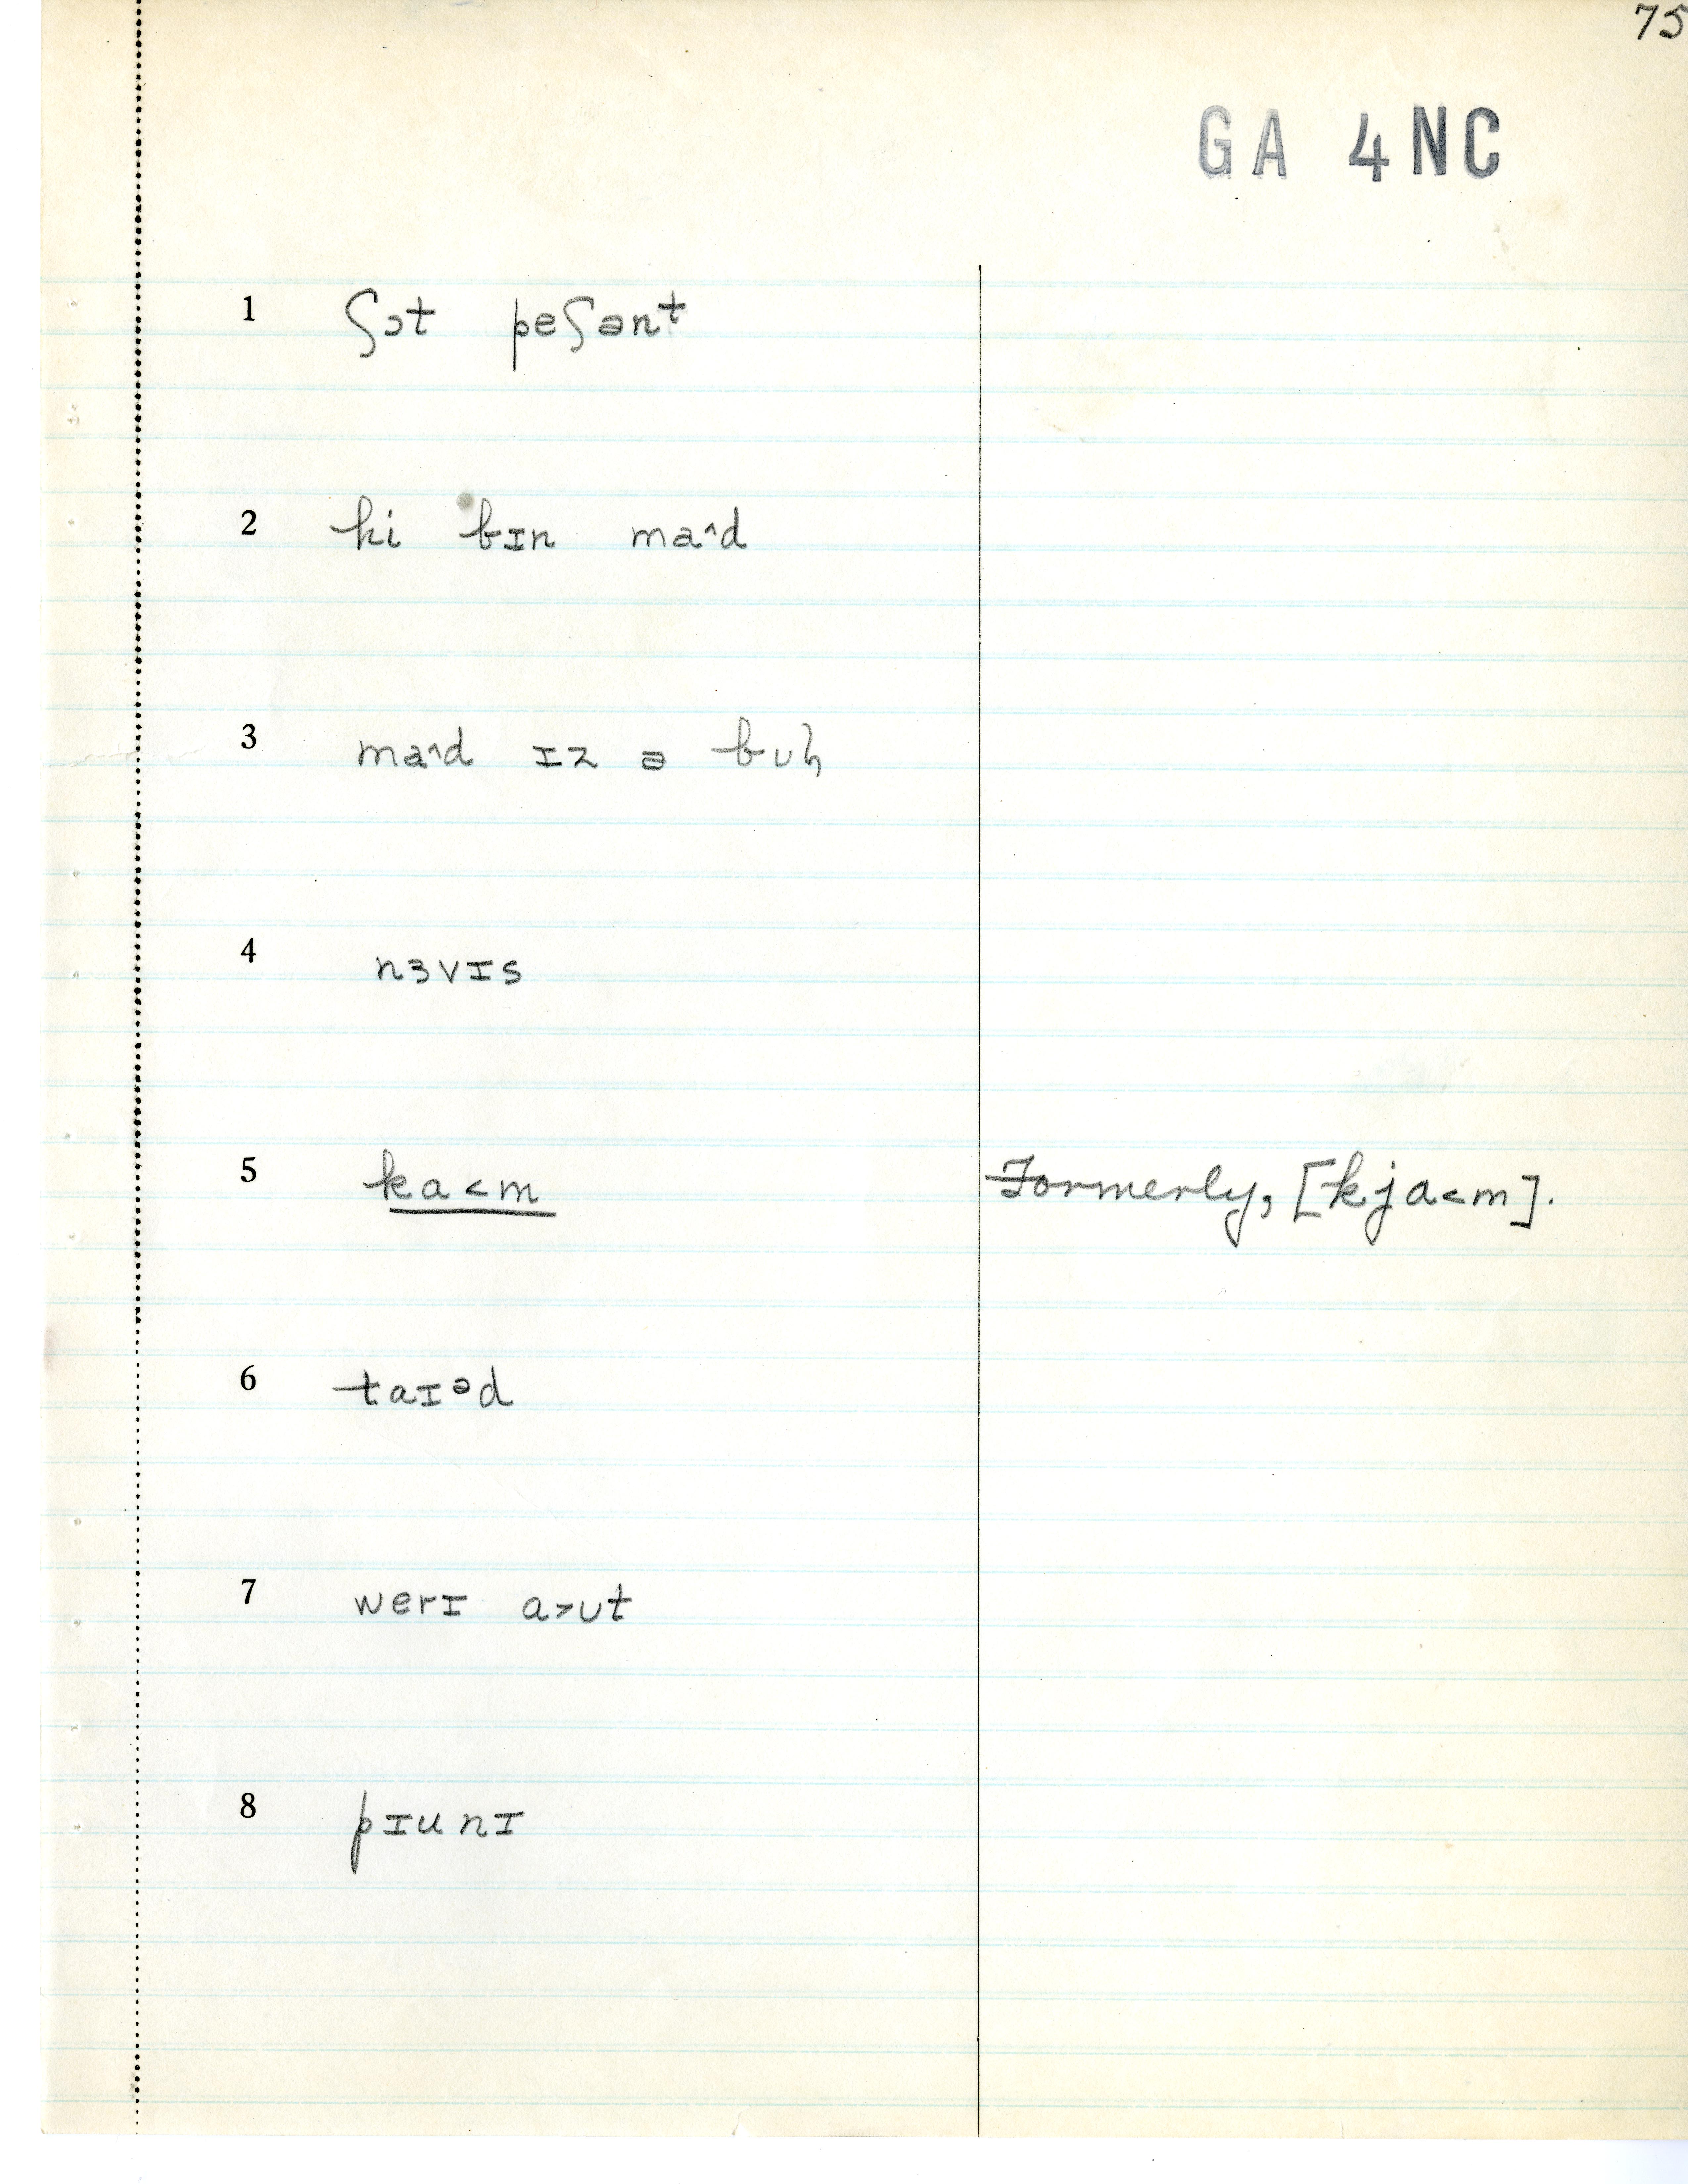 75
GA 4NC
1 ʃɔt peʃənᵗ
2 ki bɪn ma^d
3 ma^d ɪz ə bʊɦ
4 nɜvɪs
5 ka<m Formerly, [kja<m].
6 taɪᵊd
7 werɪ a>ʊt
8 pɪunɪ